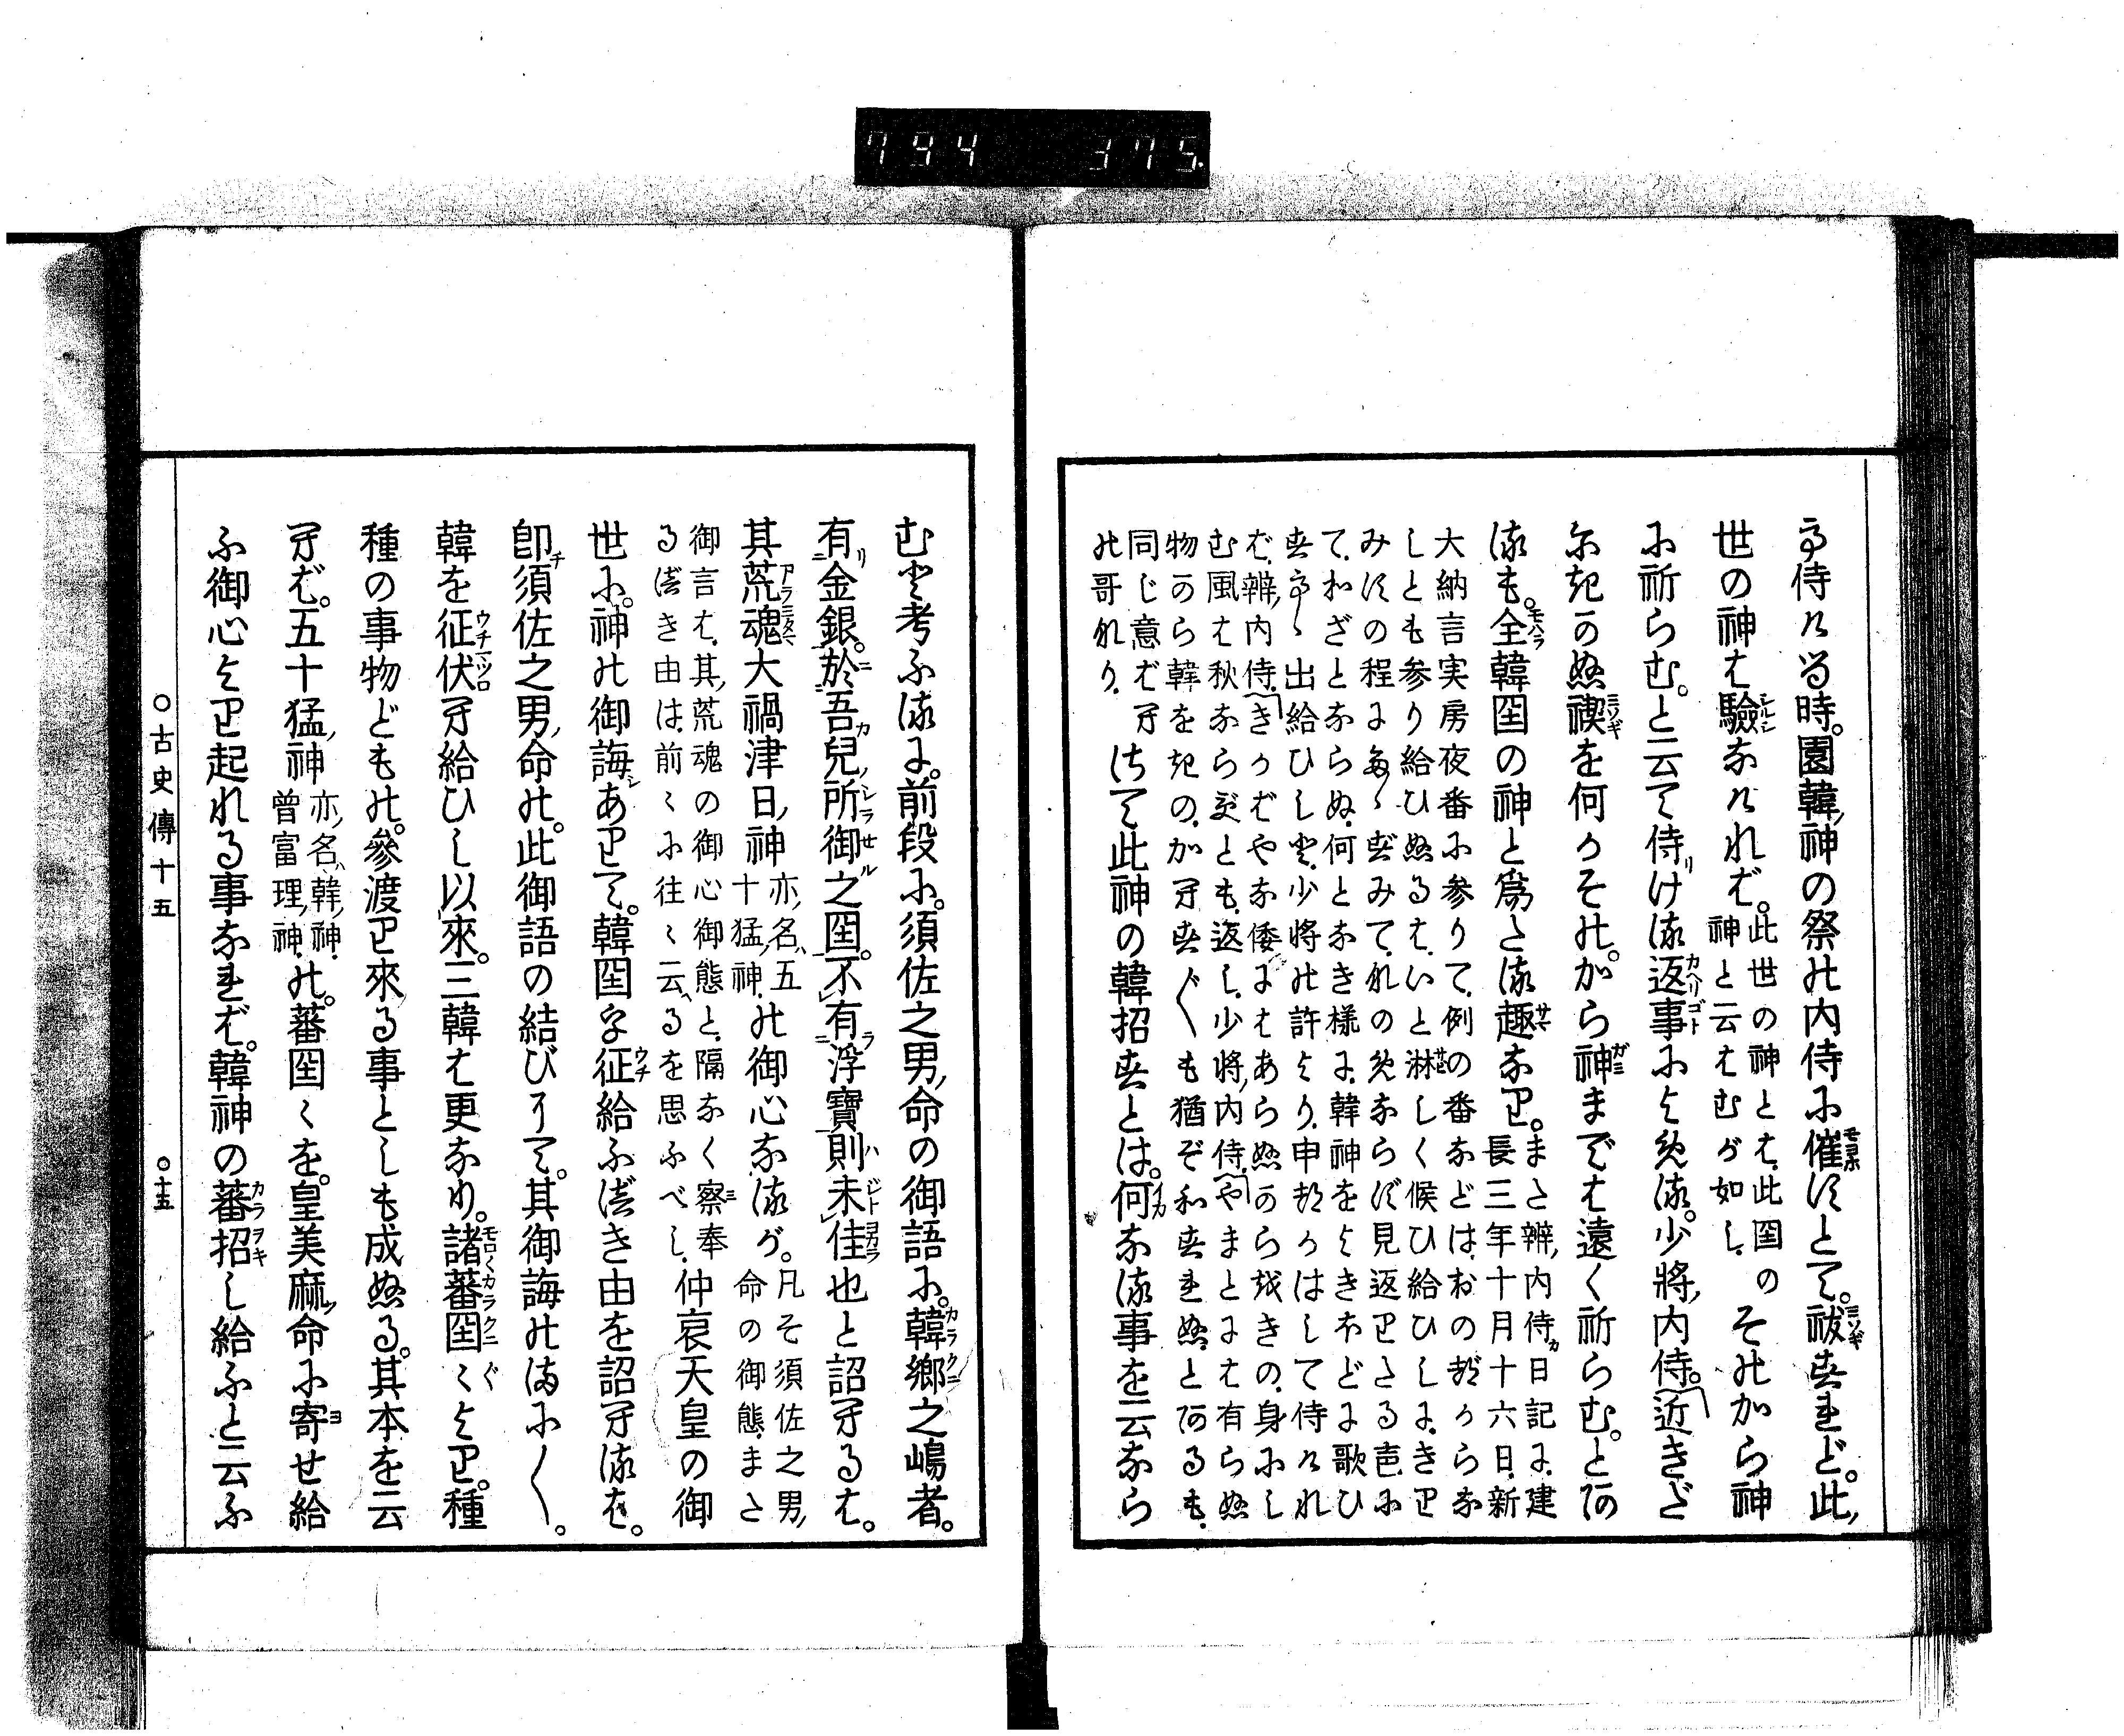 794 375
て侍ける時。園韓神の祭の内侍に催すとて。祓すれど。此
世の神は驗なければ。此世の神とは、此国の
神と云はむが如し。そのから神
に祈らむ。と云て侍ける返事によめる。少將內侍。近きだ
にきかぬ禊を何かその。から神までは遠く祈らむ。とあ
るも。全韓国の神と爲たる趣なり。また辨內侍日記に、建
長三年十月十六日、新
大納言実房夜番に参りて、例の番などは、おのづからな
しとも参り給ひぬるは、いと淋しく候ひ給ひしに、きり
みすの程にたゝずみて、れのめならず見返りたる色に
て、わざとならぬ、何となき様に、韓神をよきほどに歌ひ
すてゝ出給ひしを、少將の許より、申つかはして侍けれ
ば、辨內侍、きかばやな倭にはあらぬからをきの、身にし
む風は秋ならずとも、返し、少將內侍、やまとには有らぬ
物から韓をきの、かへすがへすも猶ぞ和すれぬ、とあるも、
同じ意ばへ
の哥なり、
さて此神の韓招すとは。何なる事を云なら
むと考ふるに。前段に。須佐之男命の御語に。韓鄕之嶋者。
有金銀。於吾兒所御之国。不有浮寶則未佳也と詔へるは。
其荒魂大禍津日神亦名、五
十猛神、の御心なるが。凡そ須佐之男
命の御態、また
御言は、其荒魂の御心御態と、隔なく察奉
るべき由は、前々に往々云へるを思ふべし、仲哀天皇の御
世に。神の御誨ありて。韓国を征給ふべき由を詔へるは。
卽須佐之男命の。此御語の結びにて。其御誨のまに〱。
韓を征伏へ給ひし以來。三韓は更なり。諸蕃国々より。種
種の事物どもの。參渡り來る事としも成ぬる。其本を云
へば。五十猛神亦名、韓神、
曾富理神、の。蕃国々を。皇美麻命に寄せ給
ふ御心より起れる事なれば。韓神の蕃招し給ふと云ふ
○古史傳十五 ○十五